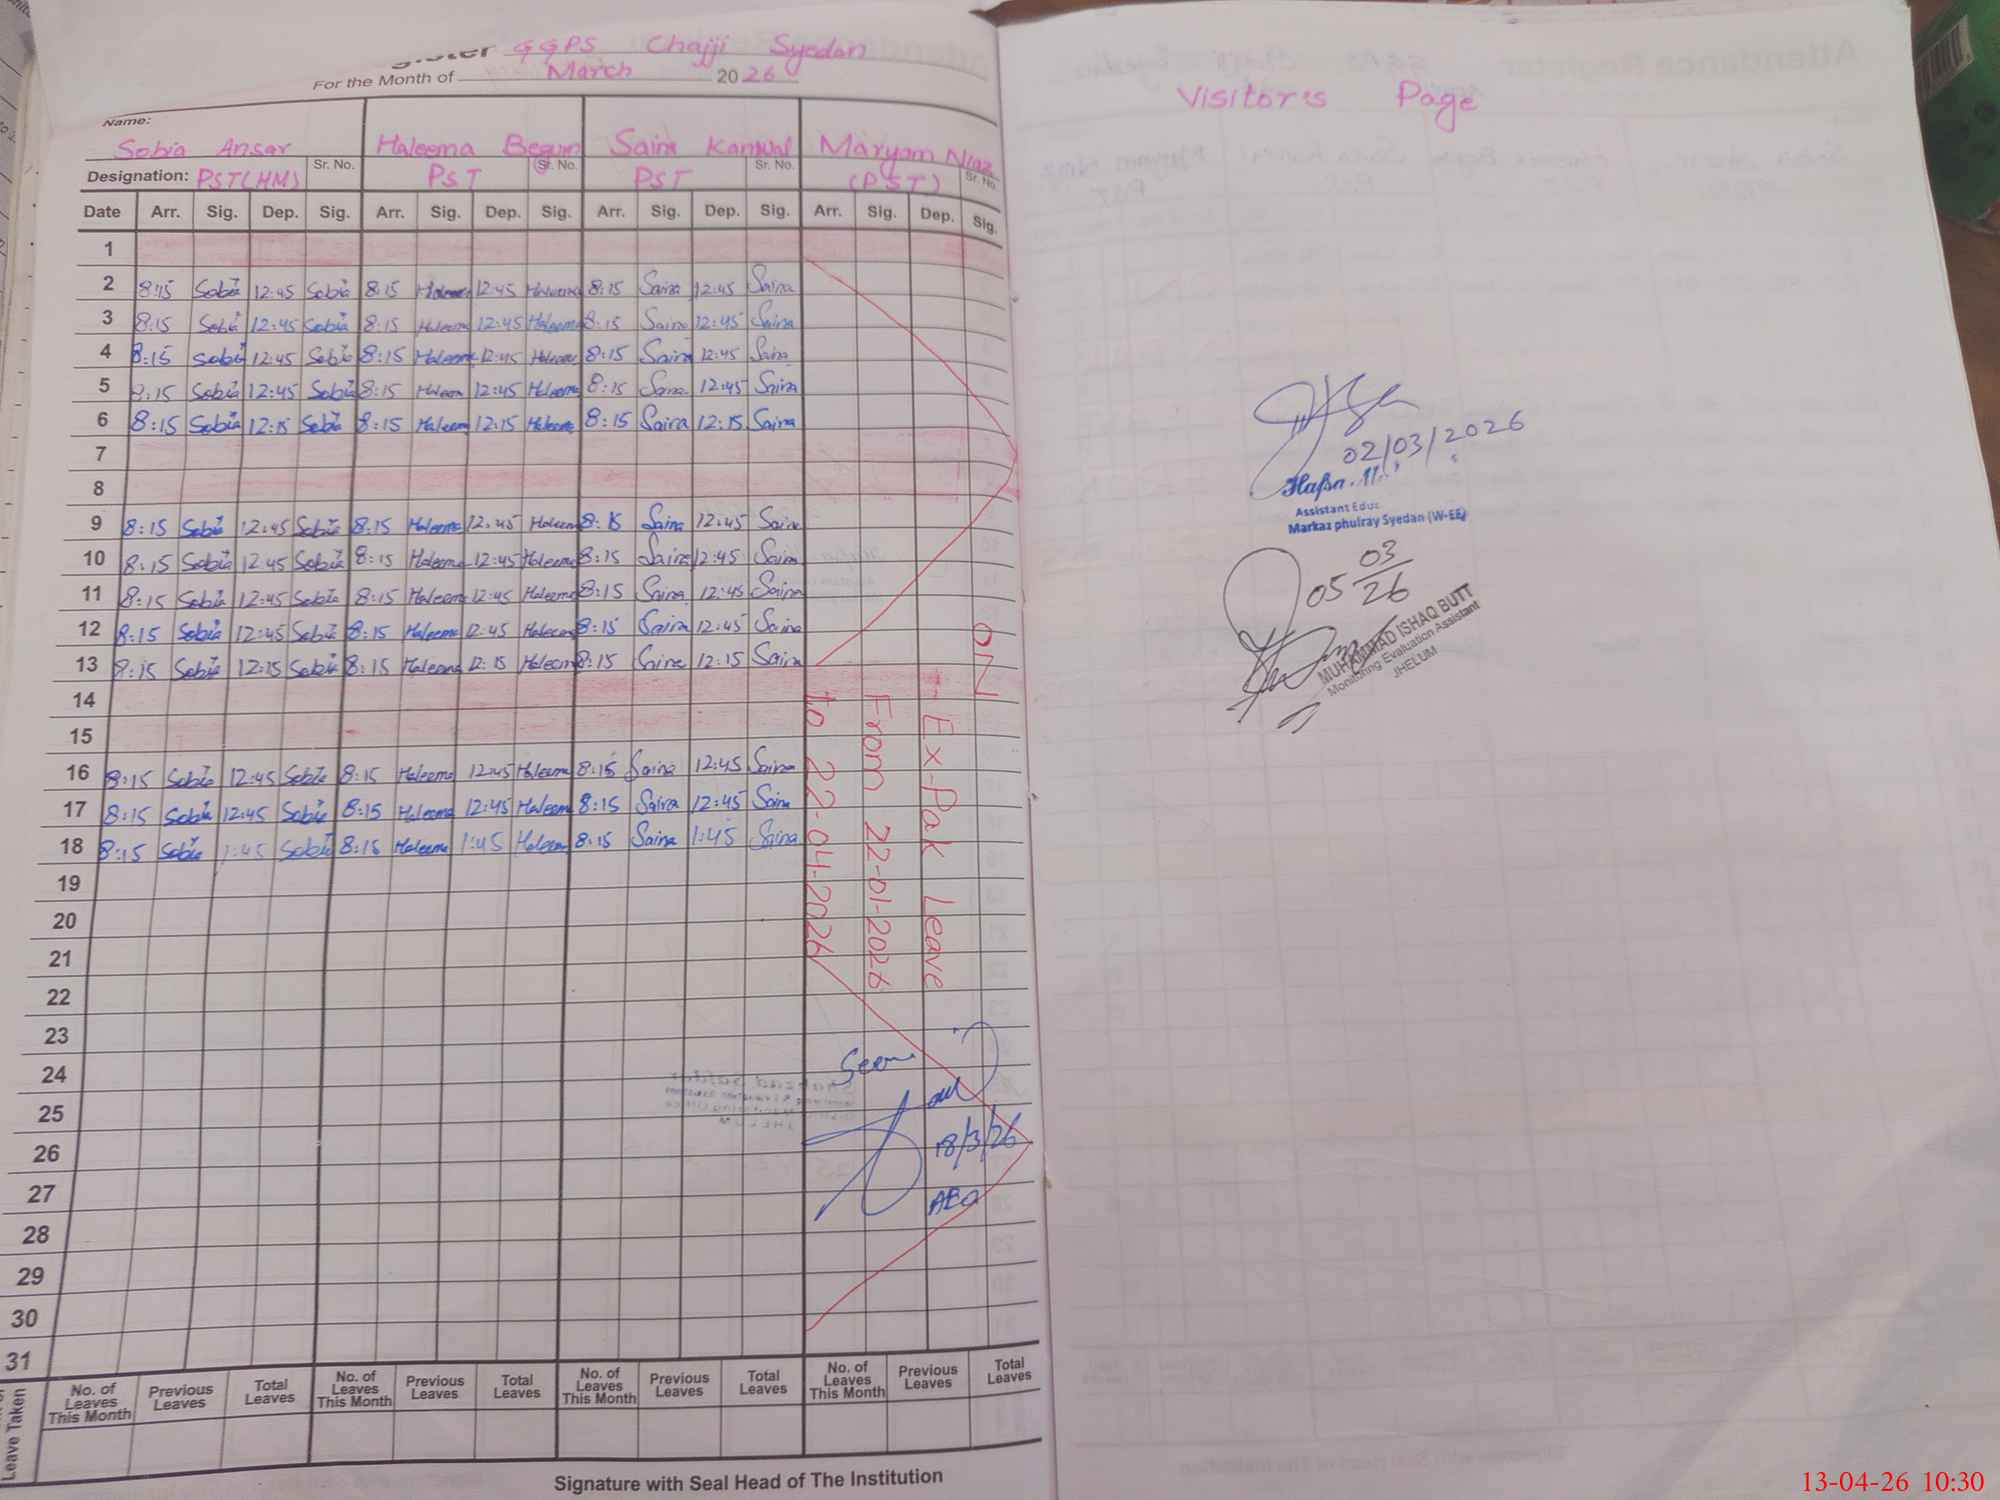 GGPS Chajji Syedan
For the Month of March 2026
Name:
Sobia Ansar Haleema Begum Saira Kanwal Maryam Niaz
Designation: PST(HM) Sr. No. PST Sr. No. PST Sr. No. (PST) Sr. No.
Date Arr. Sig. Dep. Sig. Arr. Sig. Dep. Sig. Arr. Sig. Dep. Sig. Arr. Sig. Dep. Sig.
1
2 8:15 Sobia 12:45 Sobia 8:15 Haleema 12:45 Haleema 8:15 Saira 12:45 Saira
3 8:15 Sobia 12:45 Sobia 8:15 Haleema 12:45 Haleema 8:15 Saira 12:45 Saira
4 8:15 Sobia 12:45 Sobia 8:15 Haleema 12:45 Haleema 8:15 Saira 12:45 Saira
5 8:15 Sobia 12:45 Sobia 8:15 Haleema 12:45 Haleema 8:15 Saira 12:45 Saira
6 8:15 Sobia 12:15 Sobia 8:15 Haleema 12:15 Haleema 8:15 Saira 12:15 Saira
7
8
9 8:15 Sobia 12:45 Sobia 8:15 Haleema 12:45 Haleema 8:15 Saira 12:45 Saira
10 8:15 Sobia 12:45 Sobia 8:15 Haleema 12:45 Haleema 8:15 Saira 12:45 Saira
11 8:15 Sobia 12:45 Sobia 8:15 Haleema 12:45 Haleema 8:15 Saira 12:45 Saira
12 8:15 Sobia 12:45 Sobia 8:15 Haleema 12:45 Haleema 8:15 Saira 12:45 Saira
13 8:15 Sobia 12:15 Sobia 8:15 Haleema 12:15 Haleema 8:15 Saira 12:15 Saira
14
15
16 8:15 Sobia 12:45 Sobia 8:15 Haleema 12:45 Haleema 8:15 Saira 12:45 Saira
17 8:15 Sobia 12:45 Sobia 8:15 Haleema 12:45 Haleema 8:15 Saira 12:45 Saira
18 8:15 Sobia 1:45 Sobia 8:15 Haleema 1:45 Haleema 8:15 Saira 1:45 Saira
19
20
21
22
23
24
25
26
27
28
29
30
31
ON
Ex-Pak Leave
From 22-01-2026
to 22-04-2026
Seen
18/3/26
AEO
Leave Taken
No. of Leaves This Month Previous Leaves Total Leaves No. of Leaves This Month Previous Leaves Total Leaves No. of Leaves This Month Previous Leaves Total Leaves No. of Leaves This Month Previous Leaves Total Leaves
Signature with Seal Head of The Institution
Visitor's Page
02/03/2026
Assistant Educ
Markaz phulray Syedan (W-EE)
05 03
26
MUHAMMAD ISHAQ BUTT
Monitoring Evaluation Assistant
JHELUM
13-04-26 10:30